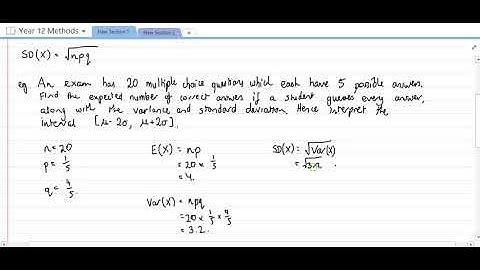 Year 12 Methods
New Section 1
New Section 2
SD(X) = √npq
eg An exam has 20 multiple choice questions which each have 5 possible answers.
Find the expected number of correct answers if a student guesses every answer,
along with the variance and standard deviation. Hence interpret the
interval [μ-2σ, μ+2σ].
n=20
p= 1/5
q= 4/5
E(X) = np
= 20 × 1/5
= 4.
Var(X) = npq
= 20 × 1/5 × 4/5
= 3.2.
SD(X) = √Var(X)
= √3.2